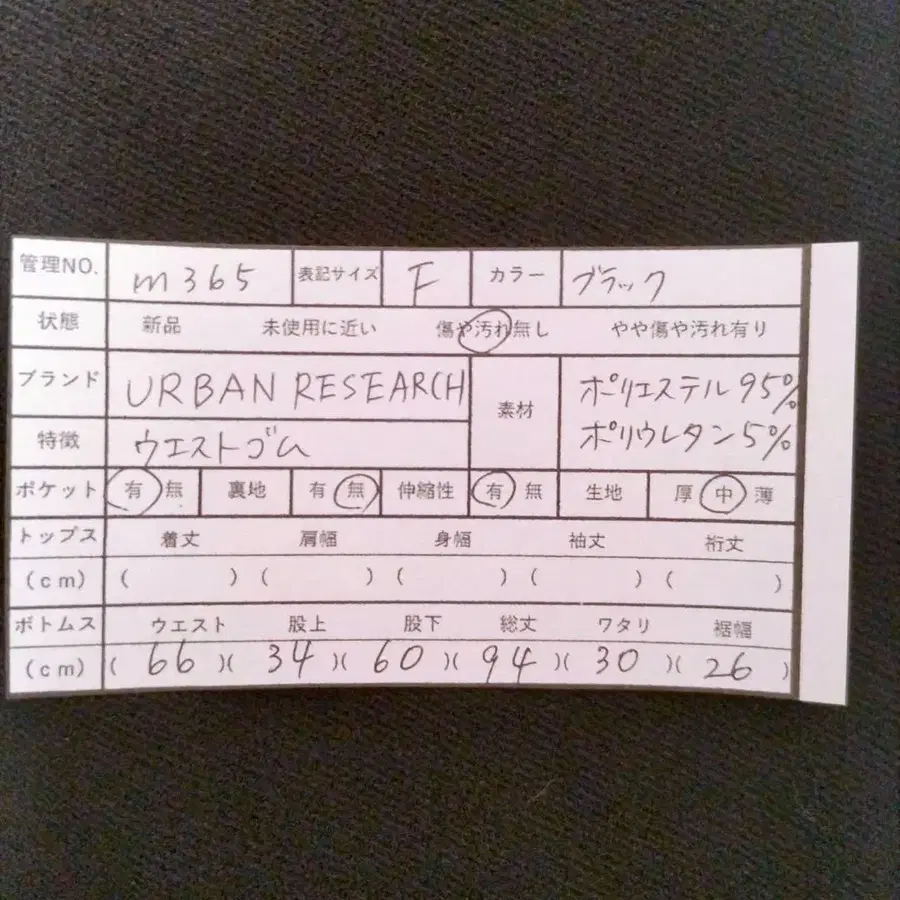 管理NO. m365 表記サイズ F カラー ブラック
状態 新品 未使用に近い 傷や汚れ無し やや傷や汚れ有り
ブランド URBAN RESEARCH 素材 ポリエステル95% ポリウレタン5%
特徴 ウエストゴム
ポケット 有 無 裏地 有 無 伸縮性 有 無 生地 厚 中 薄
トップス 着丈 肩幅 身幅 袖丈 裄丈
(cm) ( ) ( ) ( ) ( ) ( )
ボトムス ウエスト 股上 股下 総丈 ワタリ 裾幅
(cm) ( 66 )( 34 )( 60 )( 94 )( 30 )( 26 )